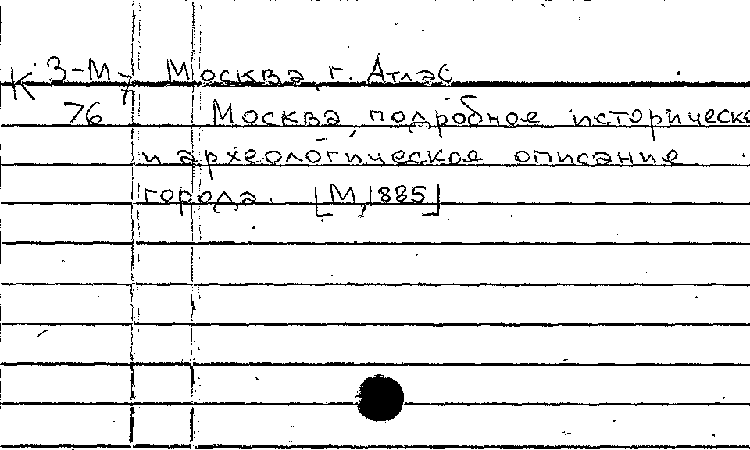 К 3-М7 Москва, г. Атлас
76 Москва, подробное историческо
и археологическое описание
города. [М, 1885]